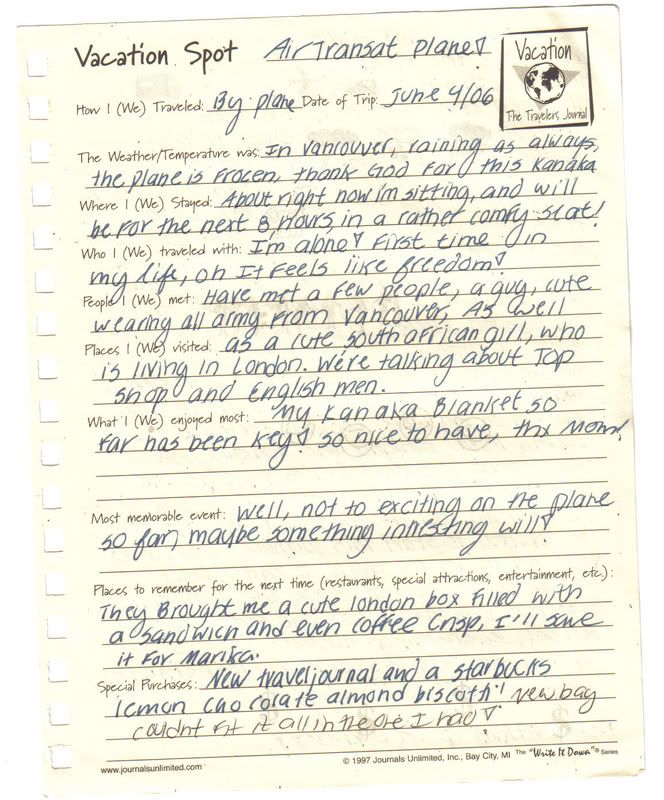 Vacation Spot AirTransat plane!
Vacation
The Travelers Journal
How I (We) Traveled: By plane Date of Trip: June 4/06
The Weather/Temperature was: In Vancouver, raining as always,
the plane is frozen, thank God for this Kanaka
Where I (We) Stayed: About right now i'm sitting, and will
be for the next 8 hours, in a rather comfy seat!
Who I (We) traveled with: I'm alone! First time in
my life, oh it feels like freedom!
People I (We) met: Have met a few people, a guy, cute
wearing all army from Vancouver, As well
Places I (We) visited: as a cute south african girl, who
is living in London. We're talking about Top
shop and English men.
What I (We) enjoyed most: My Kanaka Blanket so
far has been key! so nice to have, thx Mom!
Most memorable event: Well, not to exciting on the plane
so far, maybe something intresting will!
Places to remember for the next time (restaurants, special attractions, entertainment, etc.):
They Brought me a cute london box filled with
a sandwich and even coffee crisp, I'll save
it for Marika.
Special Purchases: New travel journal and a starbucks
lemon chocorate almond biscotti! New bag
couldnt fit it all in the one I had!
www.journalsunlimited.com © 1997 Journals Unlimited, Inc., Bay City, MI The "Write It Down"® Series